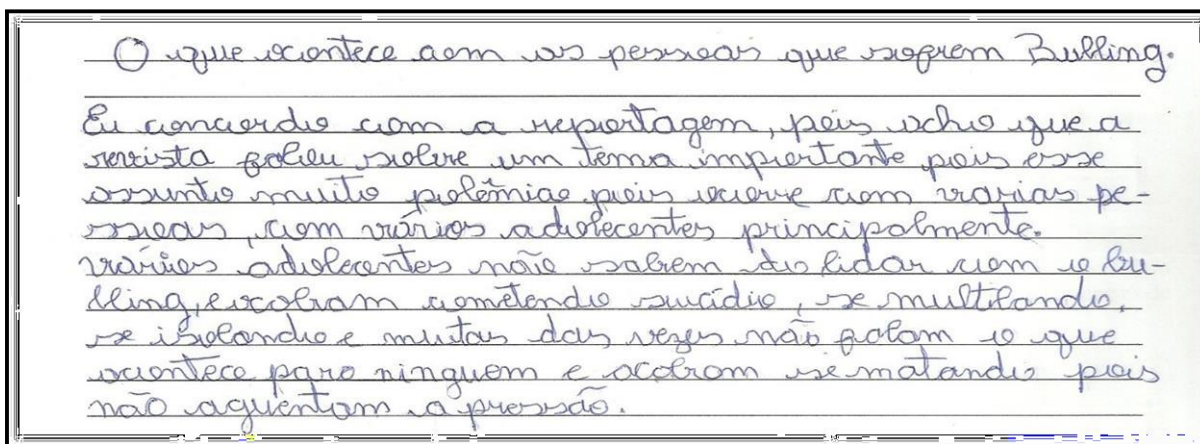 O que acontece com as pessoas que sofrem Bulling.
Eu concordo com a reportagem, pois acho que a
revista falou sobre um tema importante pois esse
assunto muito polêmico pois ocorre com varias pe-
ssoas, com vários adolecentes principalmente.
vários adolecentes não sabem lidar com o bu-
lling, e acabam cometendo suicídio, se multilando,
se isolando e muitas das vezes não falam o que
acontece para ninguem e acabam se matando pois
não aguentam a pressão.